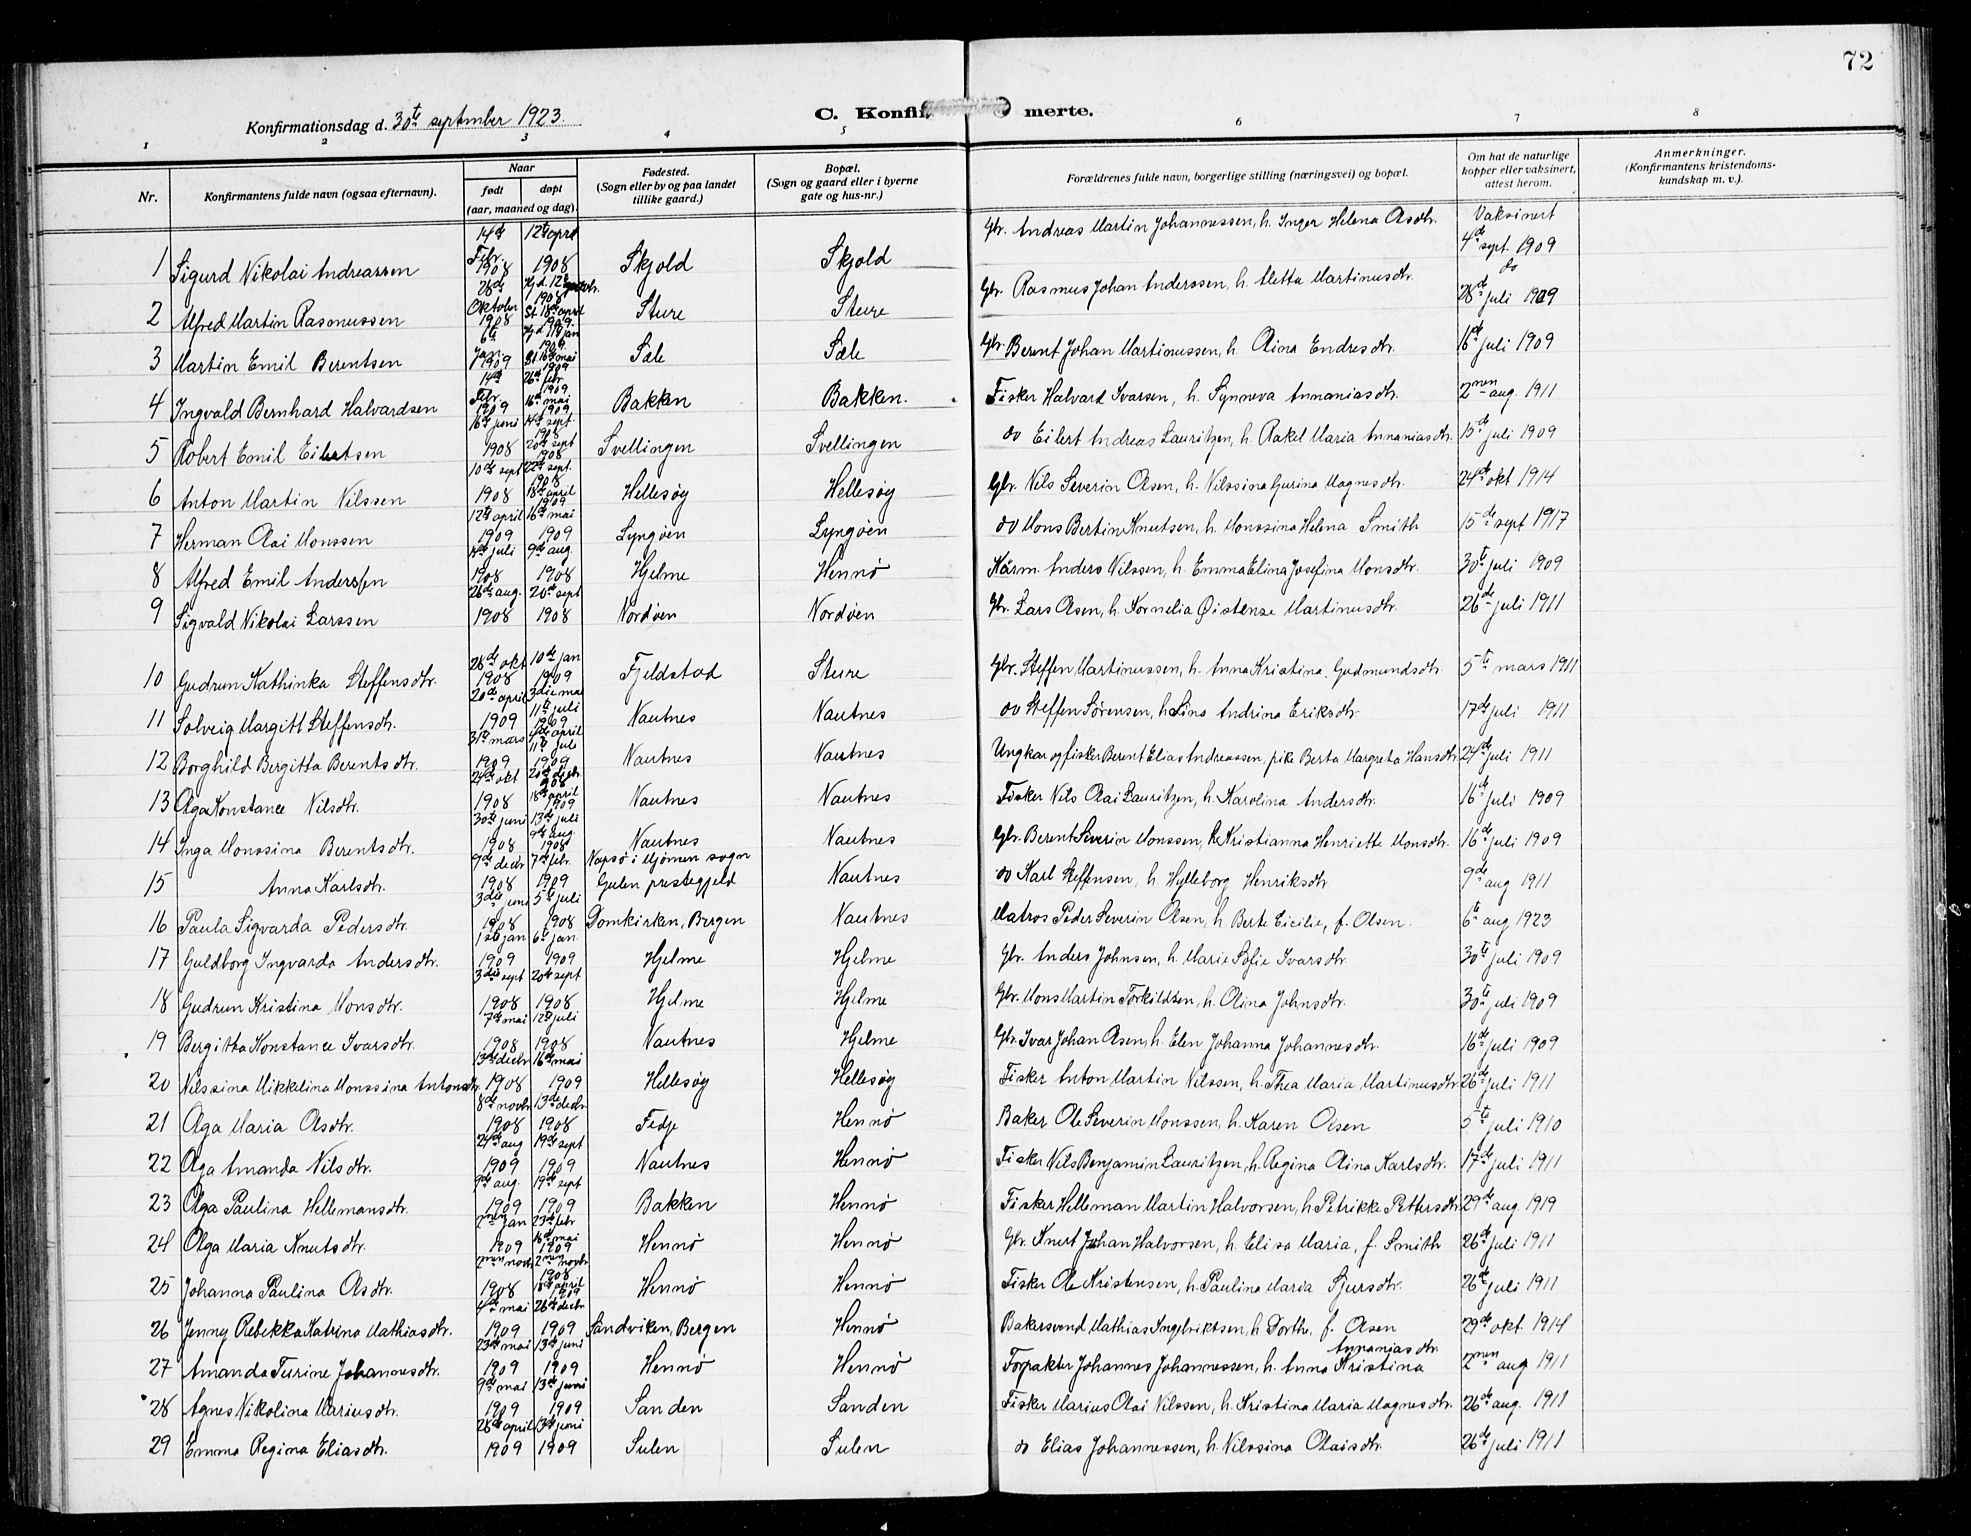 72
Konfirmationsdag d. 30te september 1923.
C. Konfir merte.
1 2 3 4 5 6 7 8
Nr. Konfirmantens fulde navn (ogsaa efternavn). Naar født døpt (aar, maaned og dag). Fødested. (Sogn eller by og paa landet tillike gaard.) Bopæl. (Sogn og gaard eller i byerne gate og hus-nr.) Forældrenes fulde navn, borgerlige stilling (næringsvei) og bopæl. Om hat de naturlige kopper eller vaksinert, attest herom. Anmerkninger. (Konfirmantens kristendoms-kundskap m. v.).
1 Sigurd Nikolai Andreassen 14de Febr. 1908 12te april 1908 Skjold Skjold Gbr. Andreas Martin Johannessen, h. Inger Helena Olsdtr. Vaksinert 4de sept. 1909
2 Alfred Martin Rasmussen 28de Oktober 1908 Hjd. 12te 1908 St. 18de april 1909 Sture Sture Gbr. Rasmus Johan Anderssen, h. Metta Martinusdtr. do 28de juli 1909
3 Martin Emil Berentsen 6te Jan. 1909 Hjd. 11te jan 1909 St. 16de mai 1909 Sæle Sæle Gbr. Berent Johan Martinussen, h. Olina Endresdtr. 16de juli 1909
4 Ingvald Bernhard Halvardsen 14de Febr. 1909 26de febr. 1909 16de mai 1909 Bakken Bakken. Fisker Halvard Ivarsen, h. Synneva Annaniasdtr. 2nen aug. 1911
5 Robert Emil Eilertsen 16de juni 1908 14de sept. 1908 20de sept 1908 Svellingen Svellingen do Eilert Andreas Lauritzen, h. Rakel Maria Annaniasdtr. 15de juli 1909
6 Anton Martin Nilssen 10de sept 1908 22de sept. 1908 18de april 1909 Hellesøy Hellesøy Gbr. Nils Severin Olsen, h. Nilssina Gurina Magnesdtr. 24de okt 1914
7 Herman Olai Monssen 12te april 1909 16de mai 1909 Lyngøen Lyngøen do Mons Bertin Knutsen, h. Monssina Helena Smith 15de sept 1917
8 Alfred Emil Anderssen juli 1908 9de aug. 1908 Hjelme Hennø Kårm. Anders Nilssen, h. Emma Elina Josefina Monsdtr. 30te juli 1909
9 Sigvald Nikolai Larssen 26de aug. 1908 20de sept 1908 Nordøen Nordøen Gbr. Lars Olsen, h. Kornelia Øistense Martinusdtr. 26de juli 1911
10 Gudrun Kathinka Steffensdtr. 28de okt 1908 10de jan 1909 Fjeldstad Sture Gbr. Steffen Martinussen, h. Anna Kristina Gudmundsdtr. 5te mars 1911
11 Solveig Margitt Steffensdtr. 20de april 1909 3die mai 11te juli 1909 Nautnes Nautnes do Steffen Sørensen, h. Lina Andrina Eriksdtr 17de juli 1911
12 Borghild Bergitta Berentsdtr. 31te mars 1909 4de april 11te juli 1909 Nautnes Nautnes Ungkar og fisker Berent Elias Andreassen, pike Berta Margreta Hansdtr 24de juli 1911
13 Olga Konstance Nilsdtr. 24de okt 1908 20de decbr 1908 18de april 1909 Nautnes Nautnes Fisker Nils Olai Lauritzen, h. Karolina Andersdtr. 16de juli 1909
14 Inga Monssina Berentsdtr. 30te juni 1908 13de juli 9de aug. 1908 Nautnes Nautnes Gbr. Berent Severin Monssen, h. Kristianna Henriette Monsdtr. 16de juli 1909
15 Anna Karlsdtr. 9de decbr 1908 7de febr. 1909 Napsø i Mjømen sogn Gulen prestegjeld Nautnes do Karl Steffensen, h. Hylleborg Henriksdtr 9de aug 1911
16 Paula Sigvarda Pedersdtr. 3die juni 1908 5te juli 1908 Domkirken, Bergen Nautnes Matros Peder Severin Olsen, h. Berte Cicilie, f. Olsen. 6te aug 1923
17 Guldborg Ingvarda Andersdtr. 1ste jan 1909 6te jan. 1909 Hjelme Hjelme Gbr. Anders Johnsen, h. Marie Sofie Ivarsdtr. 30te juli 1909
18 Gudrun Kristina Monsdtr. 3die sept 1908 20de sept 1908 Hjelme Hjelme Gbr. Mons Martin Torkildsen, h. Olina Johnsdtr. 30te juli 1909
19 Bergitta Konstance Ivarsdtr. 7de mai 1908 12te juli 1908 Nautnes Hjelme Gbr. Ivar Johan Olsen, h. Elen Johanna Johannesdtr. 16de juli 1909
20 Nilssina Mikkelina Monssina Antonsdtr 13de decbr 1908 16de mai 1909 Hellesøy Hellesøy Fisker Anton Martin Nilssen, h. Thea Maria Martinusdtr 26de juli 1911
21 Olga Maria Olsdtr. 8de novbr 1908 13de decbr 1908 Fedje Hennø Baker Ole Severin Monssen, h. Karen Olsen 5te juli 1910
22 Olga Amanda Nilsdtr. 24de aug 1909 19de sept 1909 Nautnes Hennø Fisker Nils Benjamin Lauritzen, h. Regina Olina Karlsdtr. 17de juli 1911
23 Olga Paulina Hellemansdtr. 9de aug. 1909 19de sept 1909 Bakken Hennø Fisker Helleman Martin Halvorsen, h. Petrikke Pettersdtr 29de aug. 1919
24 Olga Maria Knutsdtr. 2nen jan 1909 23de febr 16de mai 1909 Hennø Hennø Gbr. Knut Johan Halvorsen, h. Elisa Maria, f. Smith 26de juli 1911
25 Johanna Paulina Olsdtr. 2nen novbr 1908 2nen novbr 1908 18de april 1909 Hennø Hennø Fisker Ole Kristensen, h. Paulina Maria Sjursdtr. 26de juli 1911
26 Jenny Rebekka Katrina Mathiasdtr. 4de mai 1909 26de decbr 1909 Sandviken, Bergen Hennø Bakersvend Mathias Ingebriktsen, h. Dorthe, f. Olsen 29de okt. 1914
27 Amanda Turine Johannesdtr. 23de mai 1909 13de juni 1909 Hennø Hennø Forpakter Johannes Johannessen, h. Anna Kristina Annaniasdtr. 2nen aug 1911
28 Agnes Nikolina Mariusdtr. 9de mai 1909 13de juni 1909 Sanden Sanden Fisker Marius Olai Nilssen, h. Kristina Maria Magnesdtr. 26de aug. 1911
29 Emma Regina Eliasdtr. 28de april 1909 13de juni 1909 Sulen Sulen do Elias Johannessen, h. Nilssina Olaisdtr. 26de juli 1911